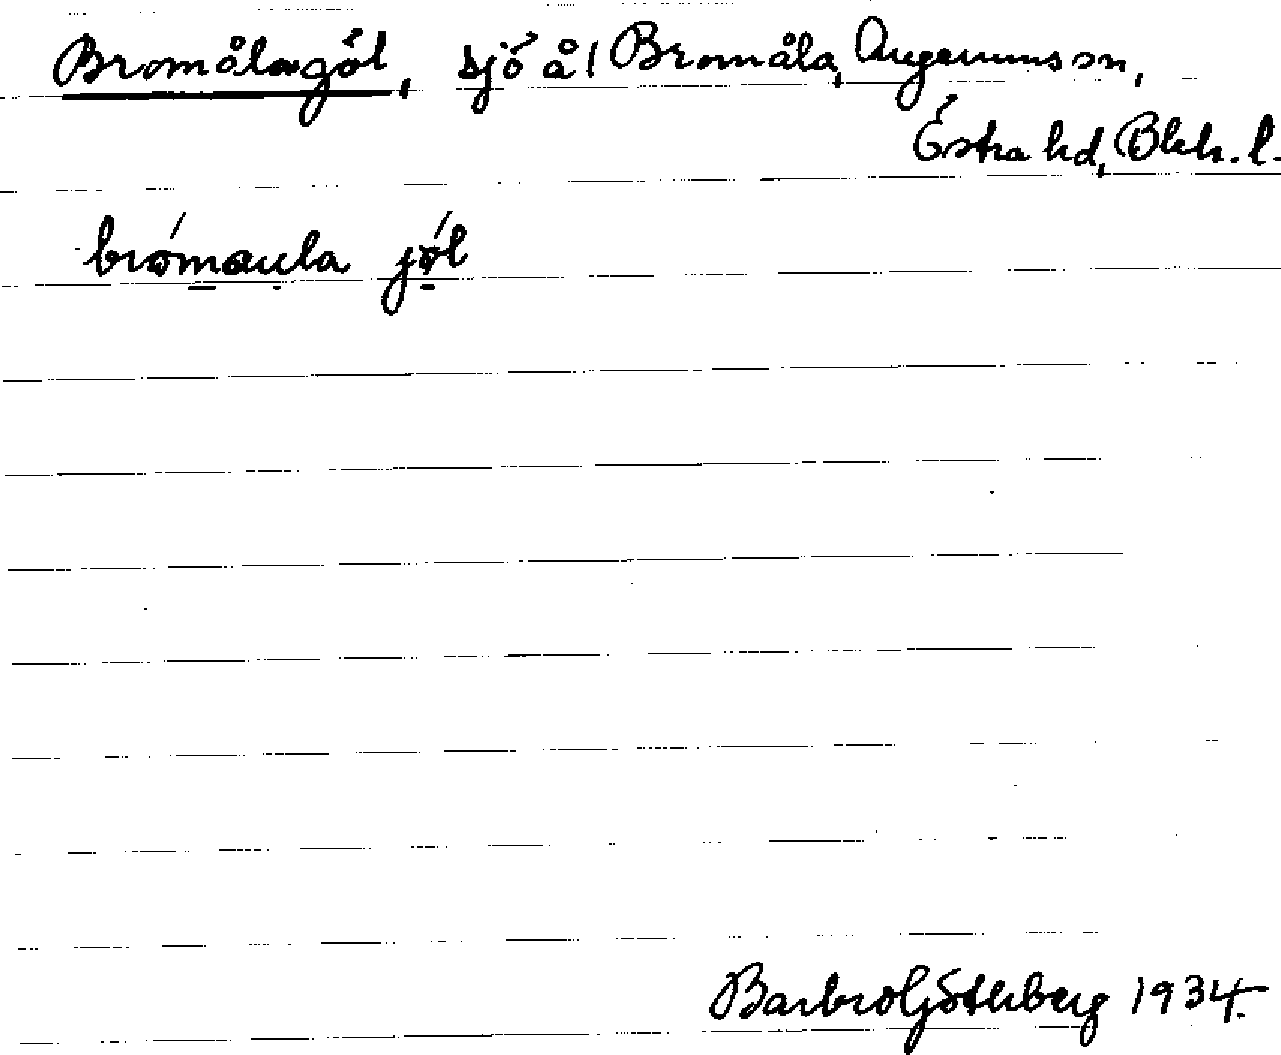 Bromålagöl, sjö å Bromåla, Augerums sn,
Östra hd, Blek. l.
bromaula jöl
Barbro Götherberg 1934.